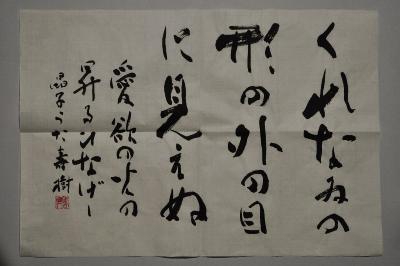 くれなゐの
形の外の目
に見えぬ
愛欲の火の
昇るひなげし
晶子うた 壽樹